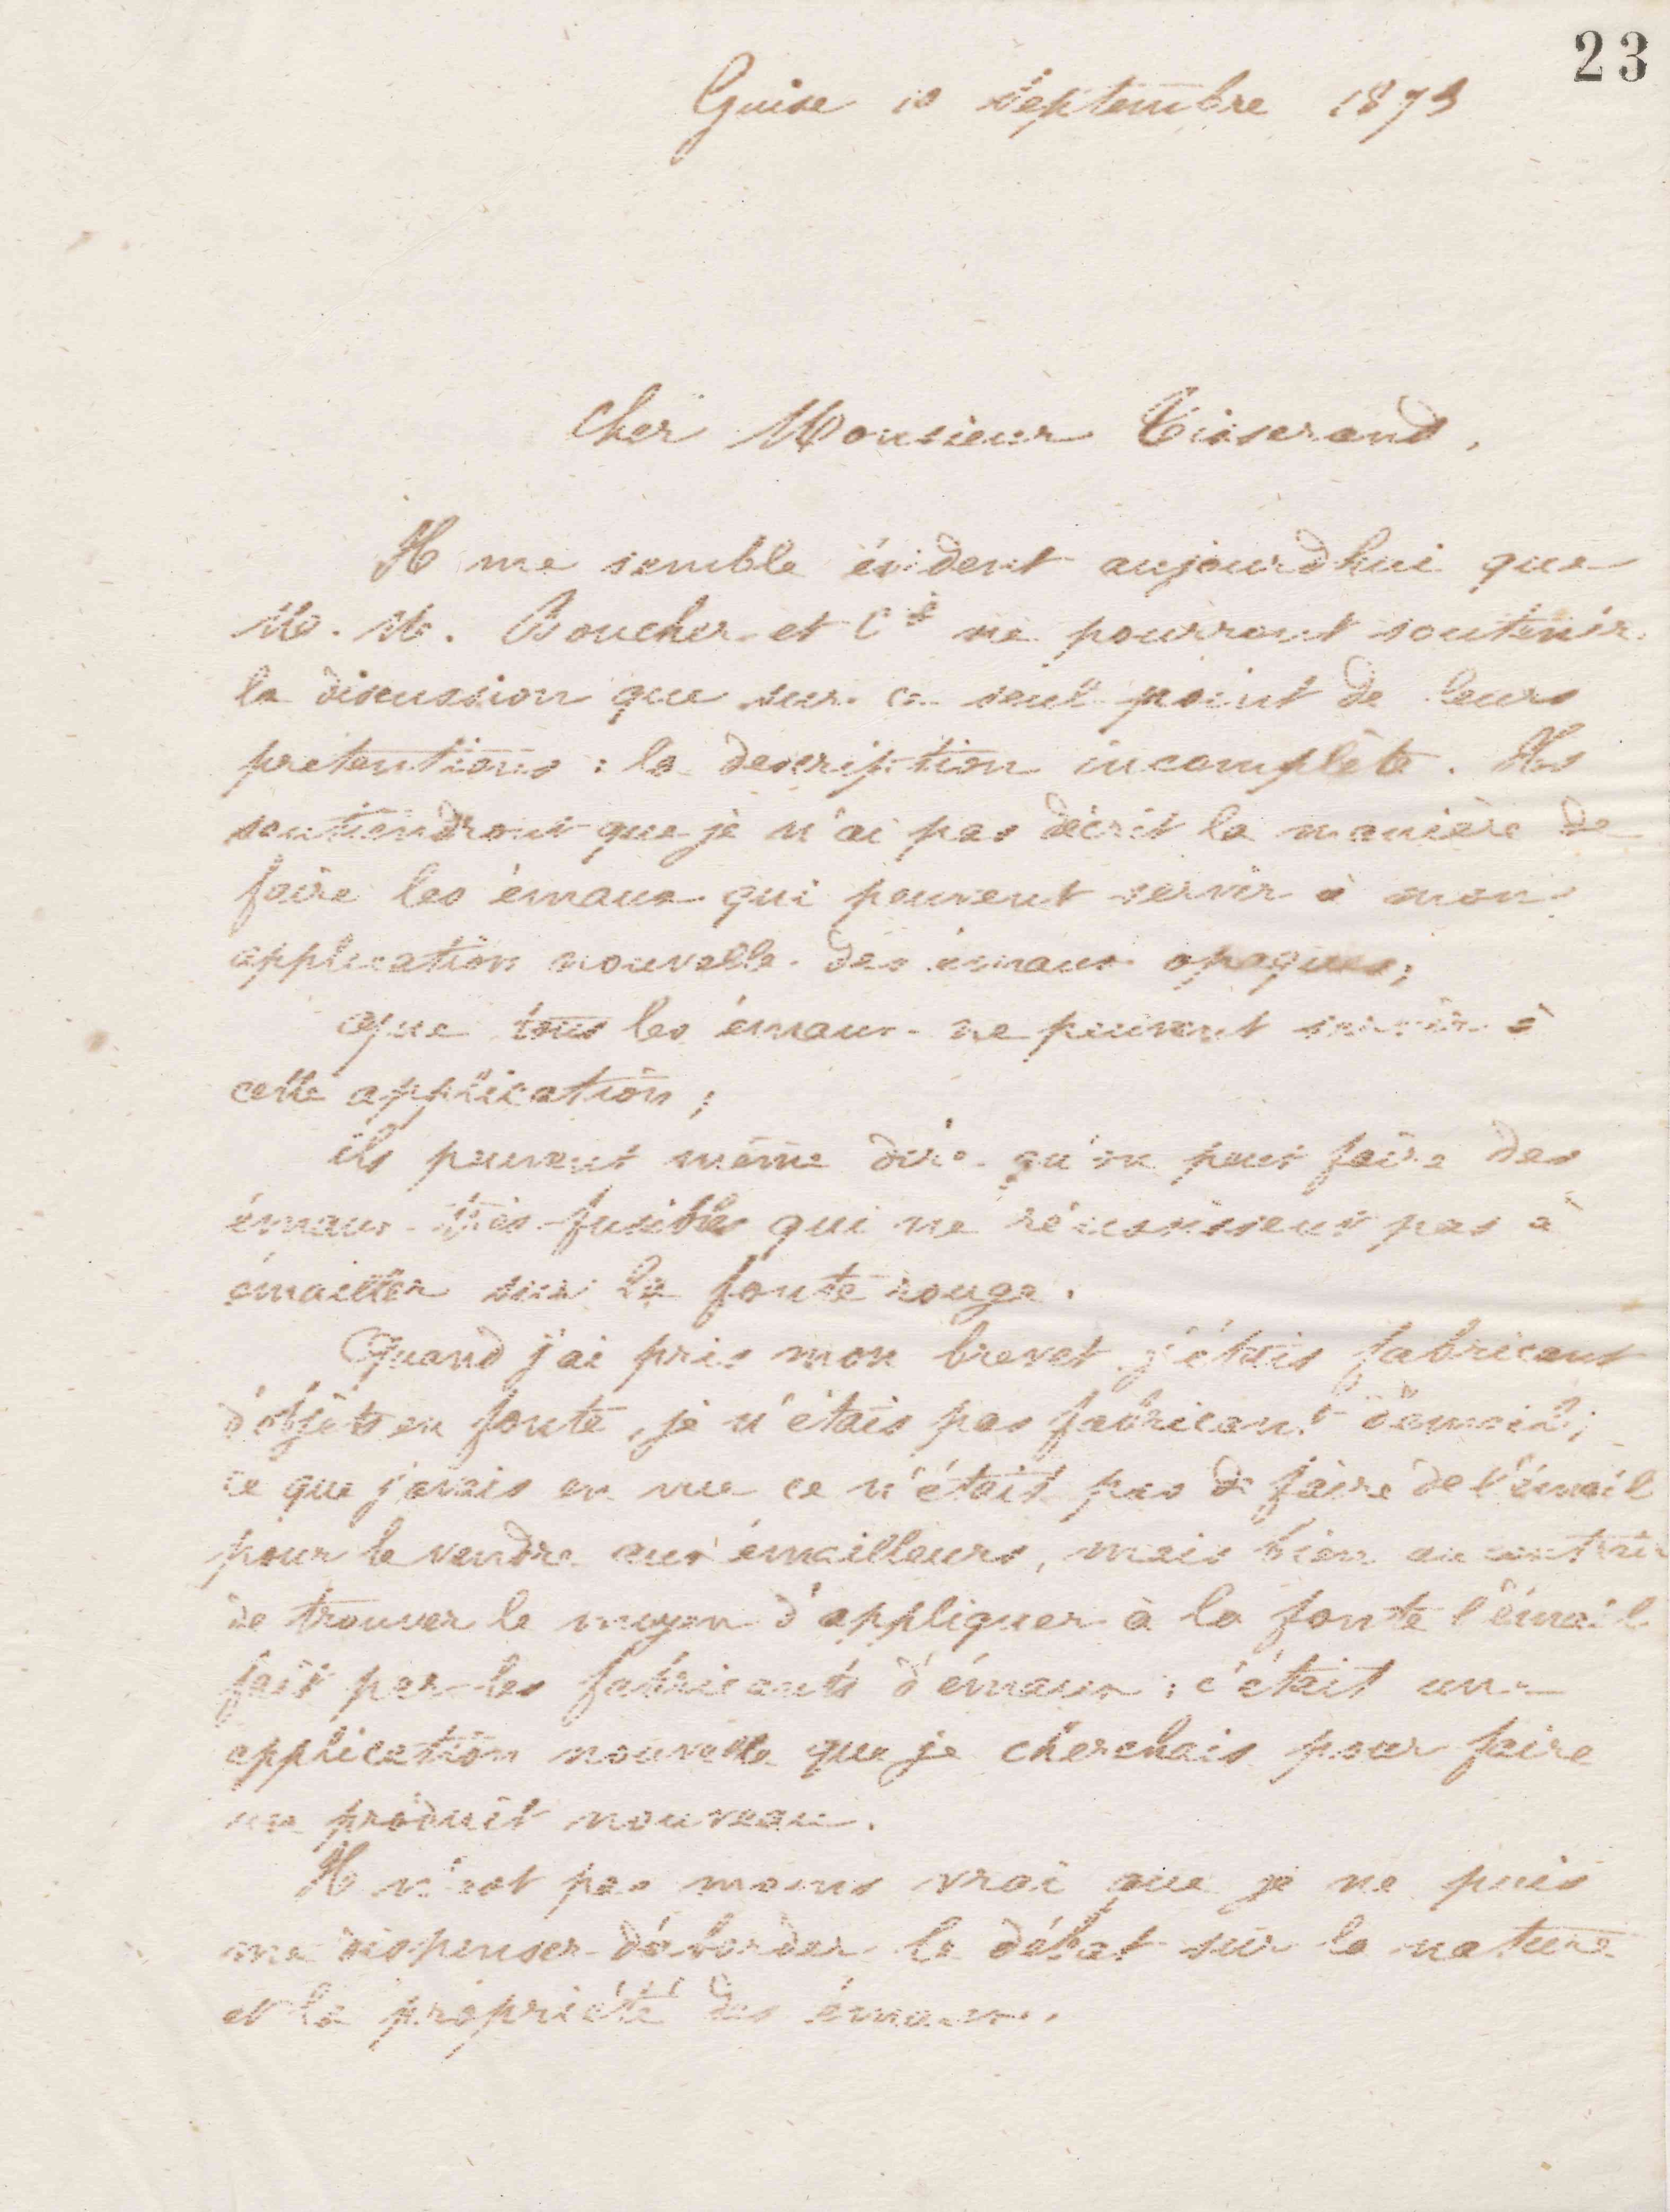 23
Guise 10 Septembre 1873
Cher Monsieur Tisserand,
Il me semble évident aujourd'hui que
M. M. Boucher et Cie ne pourront soutenir
la discussion que sur ce seul point de leurs
prétentions : la description incomplète. Ils
soutiendront que je n'ai pas décrit la manière de
faire les émaux qui peuvent servir à mon
application nouvelle des émaux opaques ;
que tous les émaux ne peuvent servir à
cette application ;
ils peuvent même dire qu'on peut faire des
émaux très fusibles qui ne réussissent pas à
émailler sur la fonte rouge.
Quand j'ai pris mon brevet j'étais fabricant
d'objets en fonte, je n'étais pas fabricant d'émail ;
ce que j'avais en vue ce n'était pas de faire de l'émail
pour le vendre aux émailleurs, mais bien au contraire
de trouver le moyen d'appliquer à la fonte l'émail
fait par les fabricants d'émaux : c'était une
application nouvelle que je cherchais pour faire
un produit nouveau.
Il n'est pas moins vrai que je ne puis
me dispenser d'aborder le débat sur la nature
et la propriété des émaux.